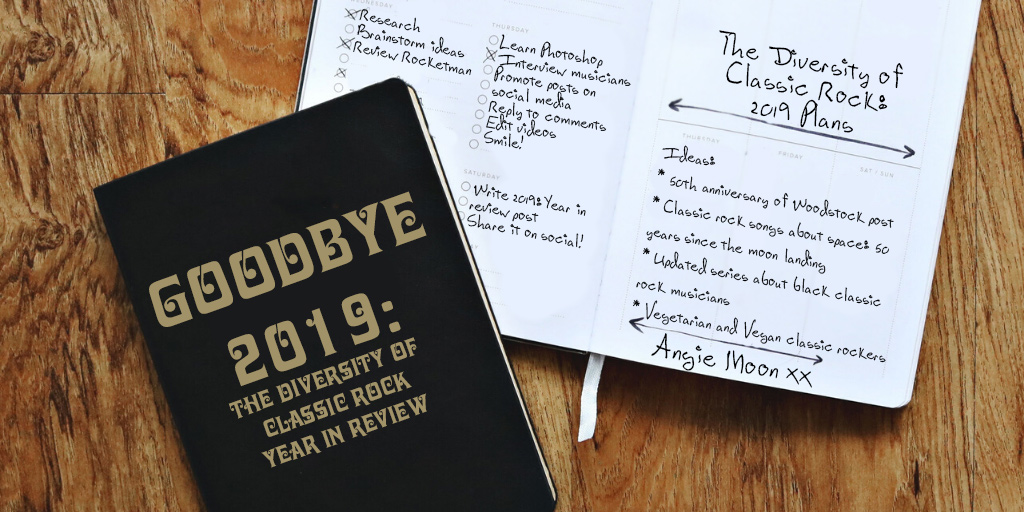 WEDNESDAY
Research
Brainstorm ideas
Review Rocketman
THURSDAY
Learn Photoshop
Interview musicians
Promote posts on
social media
Reply to comments
Edit videos
Smile!
SATURDAY
Write 2019: Year in
review post
Share it on social!
The Diversity of
Classic Rock:
2019 Plans
THURSDAY FRIDAY SAT / SUN
Ideas:
* 50th anniversary of Woodstock post
* Classic rock songs about space: 50
years since the moon landing
* Updated series about black classic
rock musicians
* Vegetarian and Vegan classic rockers
Angie Moon XX
GOODBYE
2019:
THE DIVERSITY OF
CLASSIC ROCK
YEAR IN REVIEW